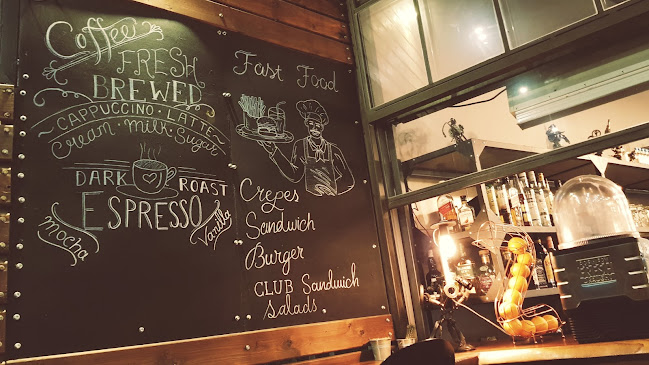 Coffee
FRESH
BREWED
CAPPUCCINO · LATTE
Cream · Milk · Sugar
DARK ROAST
ESPRESSO
mocha
Vanilla
Fast Food
Crepes
Sandwich
Burger
CLUB Sandwich
Salads